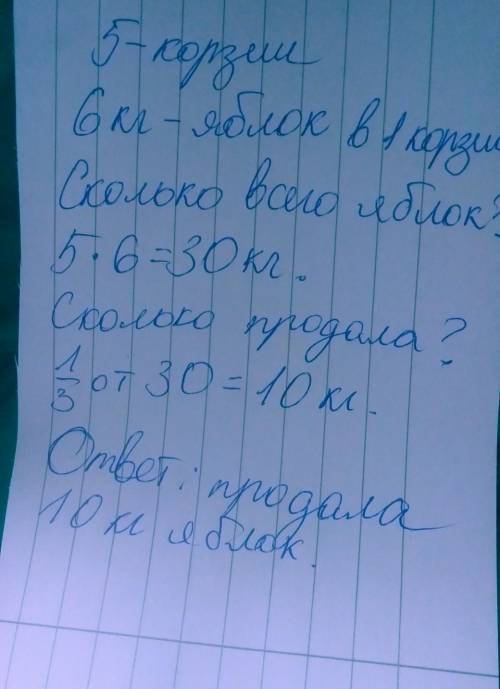 5-корзин
6кг-яблок в 1 корзин
Сколько всего яблок?
5·6=30кг.
Сколько продала?
1/3 от 30=10кг.
Ответ: продала
10кг яблок.